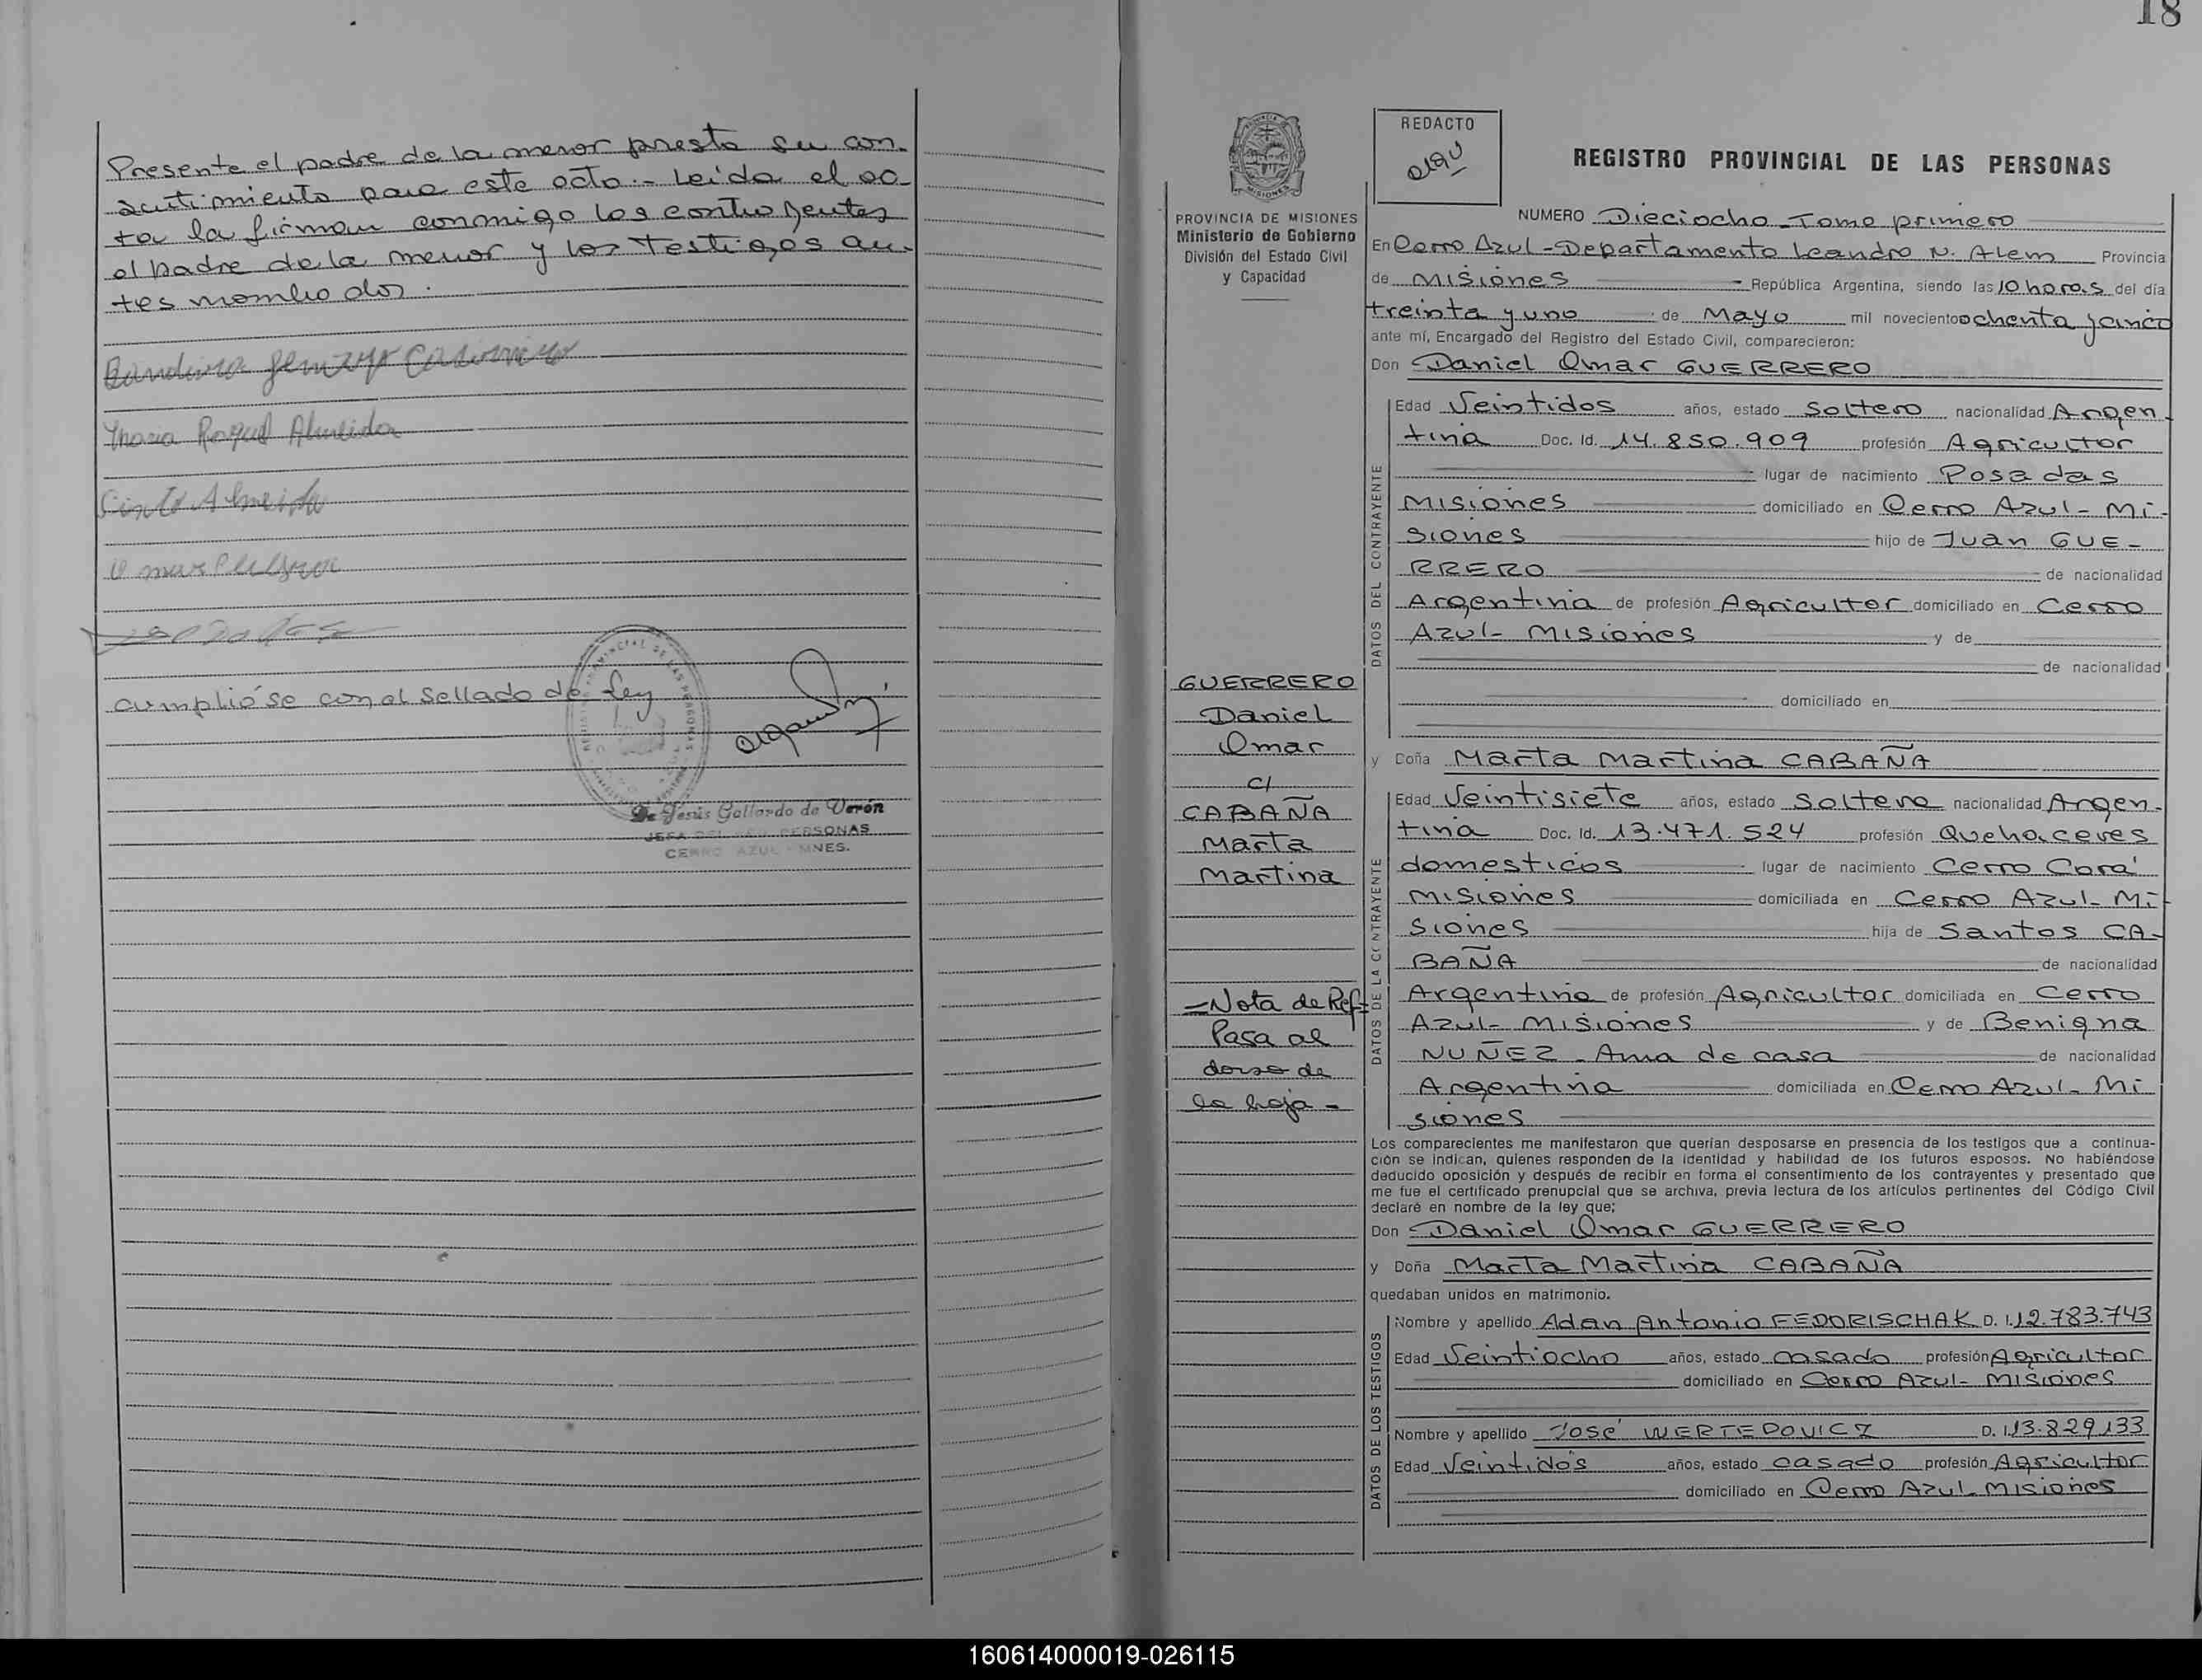 Presente el padre de la menor presta su con-
sentimiento para este acto.- Leida el ac-
ta, la firman conmigo los contrayentes
el padre de la menor y los testigos an-
tes nombrados.
Maria Raquel Almeida
Almeida
cumplióse con el sellado de Ley
De Jesús Gallardo de Verón
JEFA DEL REG. PERSONAS
CERRO AZUL - MNES.
18
PROVINCIA DE MISIONES
Ministerio de Gobierno
División del Estado Civil
y Capacidad
GUERRERO
Daniel
Omar
c/
CABAÑA
Marta
Martina
=Nota de Ref=
Pasa al
dorso de
la hoja -
REDACTO
REGISTRO PROVINCIAL DE LAS PERSONAS
NUMERO Dieciocho - Tomo primero
En Cerro Azul - Departamento Leandro N. Alem Provincia
de Misiones República Argentina, siendo las 10 horas del día
treinta y uno de Mayo mil novecientos ochenta y cinco
ante mí, Encargado del Registro del Estado Civil, comparecieron:
Don Daniel Omar GUERRERO
DATOS DEL CONTRAYENTE
Edad Veintidos años, estado Soltero nacionalidad Argen-
tina Doc. Id. 14.850.909 profesión Agricultor
lugar de nacimiento Posadas
Misiones domiciliado en Cerro Azul - Mi-
siones hijo de Juan GUE-
RRERO de nacionalidad
Argentina de profesión Agricultor domiciliado en Cerro
Azul - Misiones y de
de nacionalidad
domiciliado en
y Doña Marta Martina CABAÑA
DATOS DE LA CONTRAYENTE
Edad Veintisiete años, estado Soltera nacionalidad Argen-
tina Doc. Id. 13.471.524 profesión Quehaceres
domesticos lugar de nacimiento Cerro Corá
Misiones domiciliada en Cerro Azul - Mi-
siones hija de Santos CA-
BAÑA de nacionalidad
Argentina de profesión Agricultor domiciliada en Cerro
Azul - Misiones y de Benigna
NUÑEZ - Ama de casa de nacionalidad
Argentina domiciliada en Cerro Azul - Mi
siones
Los comparecientes me manifestaron que querían desposarse en presencia de los testigos que a continua-
ción se indican, quienes responden de la identidad y habilidad de los futuros esposos. No habiéndose
deducido oposición y después de recibir en forma el consentimiento de los contrayentes y presentado que
me fue el certificado prenupcial que se archiva, previa lectura de los artículos pertinentes del Código Civil
declaré en nombre de la ley que;
Don Daniel Omar GUERRERO
y Doña Marta Martina CABAÑA
quedaban unidos en matrimonio.
DATOS DE LOS TESTIGOS
Nombre y apellido Adan Antonio FEDORISCHAK D. I. 12.783.743
Edad Veintiocho años, estado casado profesión Agricultor
domiciliado en Cerro Azul - Misiones
Nombre y apellido José WERTEDOVICZ D. I. 13.829.133
Edad Veintidós años, estado casado profesión Agricultor
domiciliado en Cerro Azul - Misiones
160614000019-026115